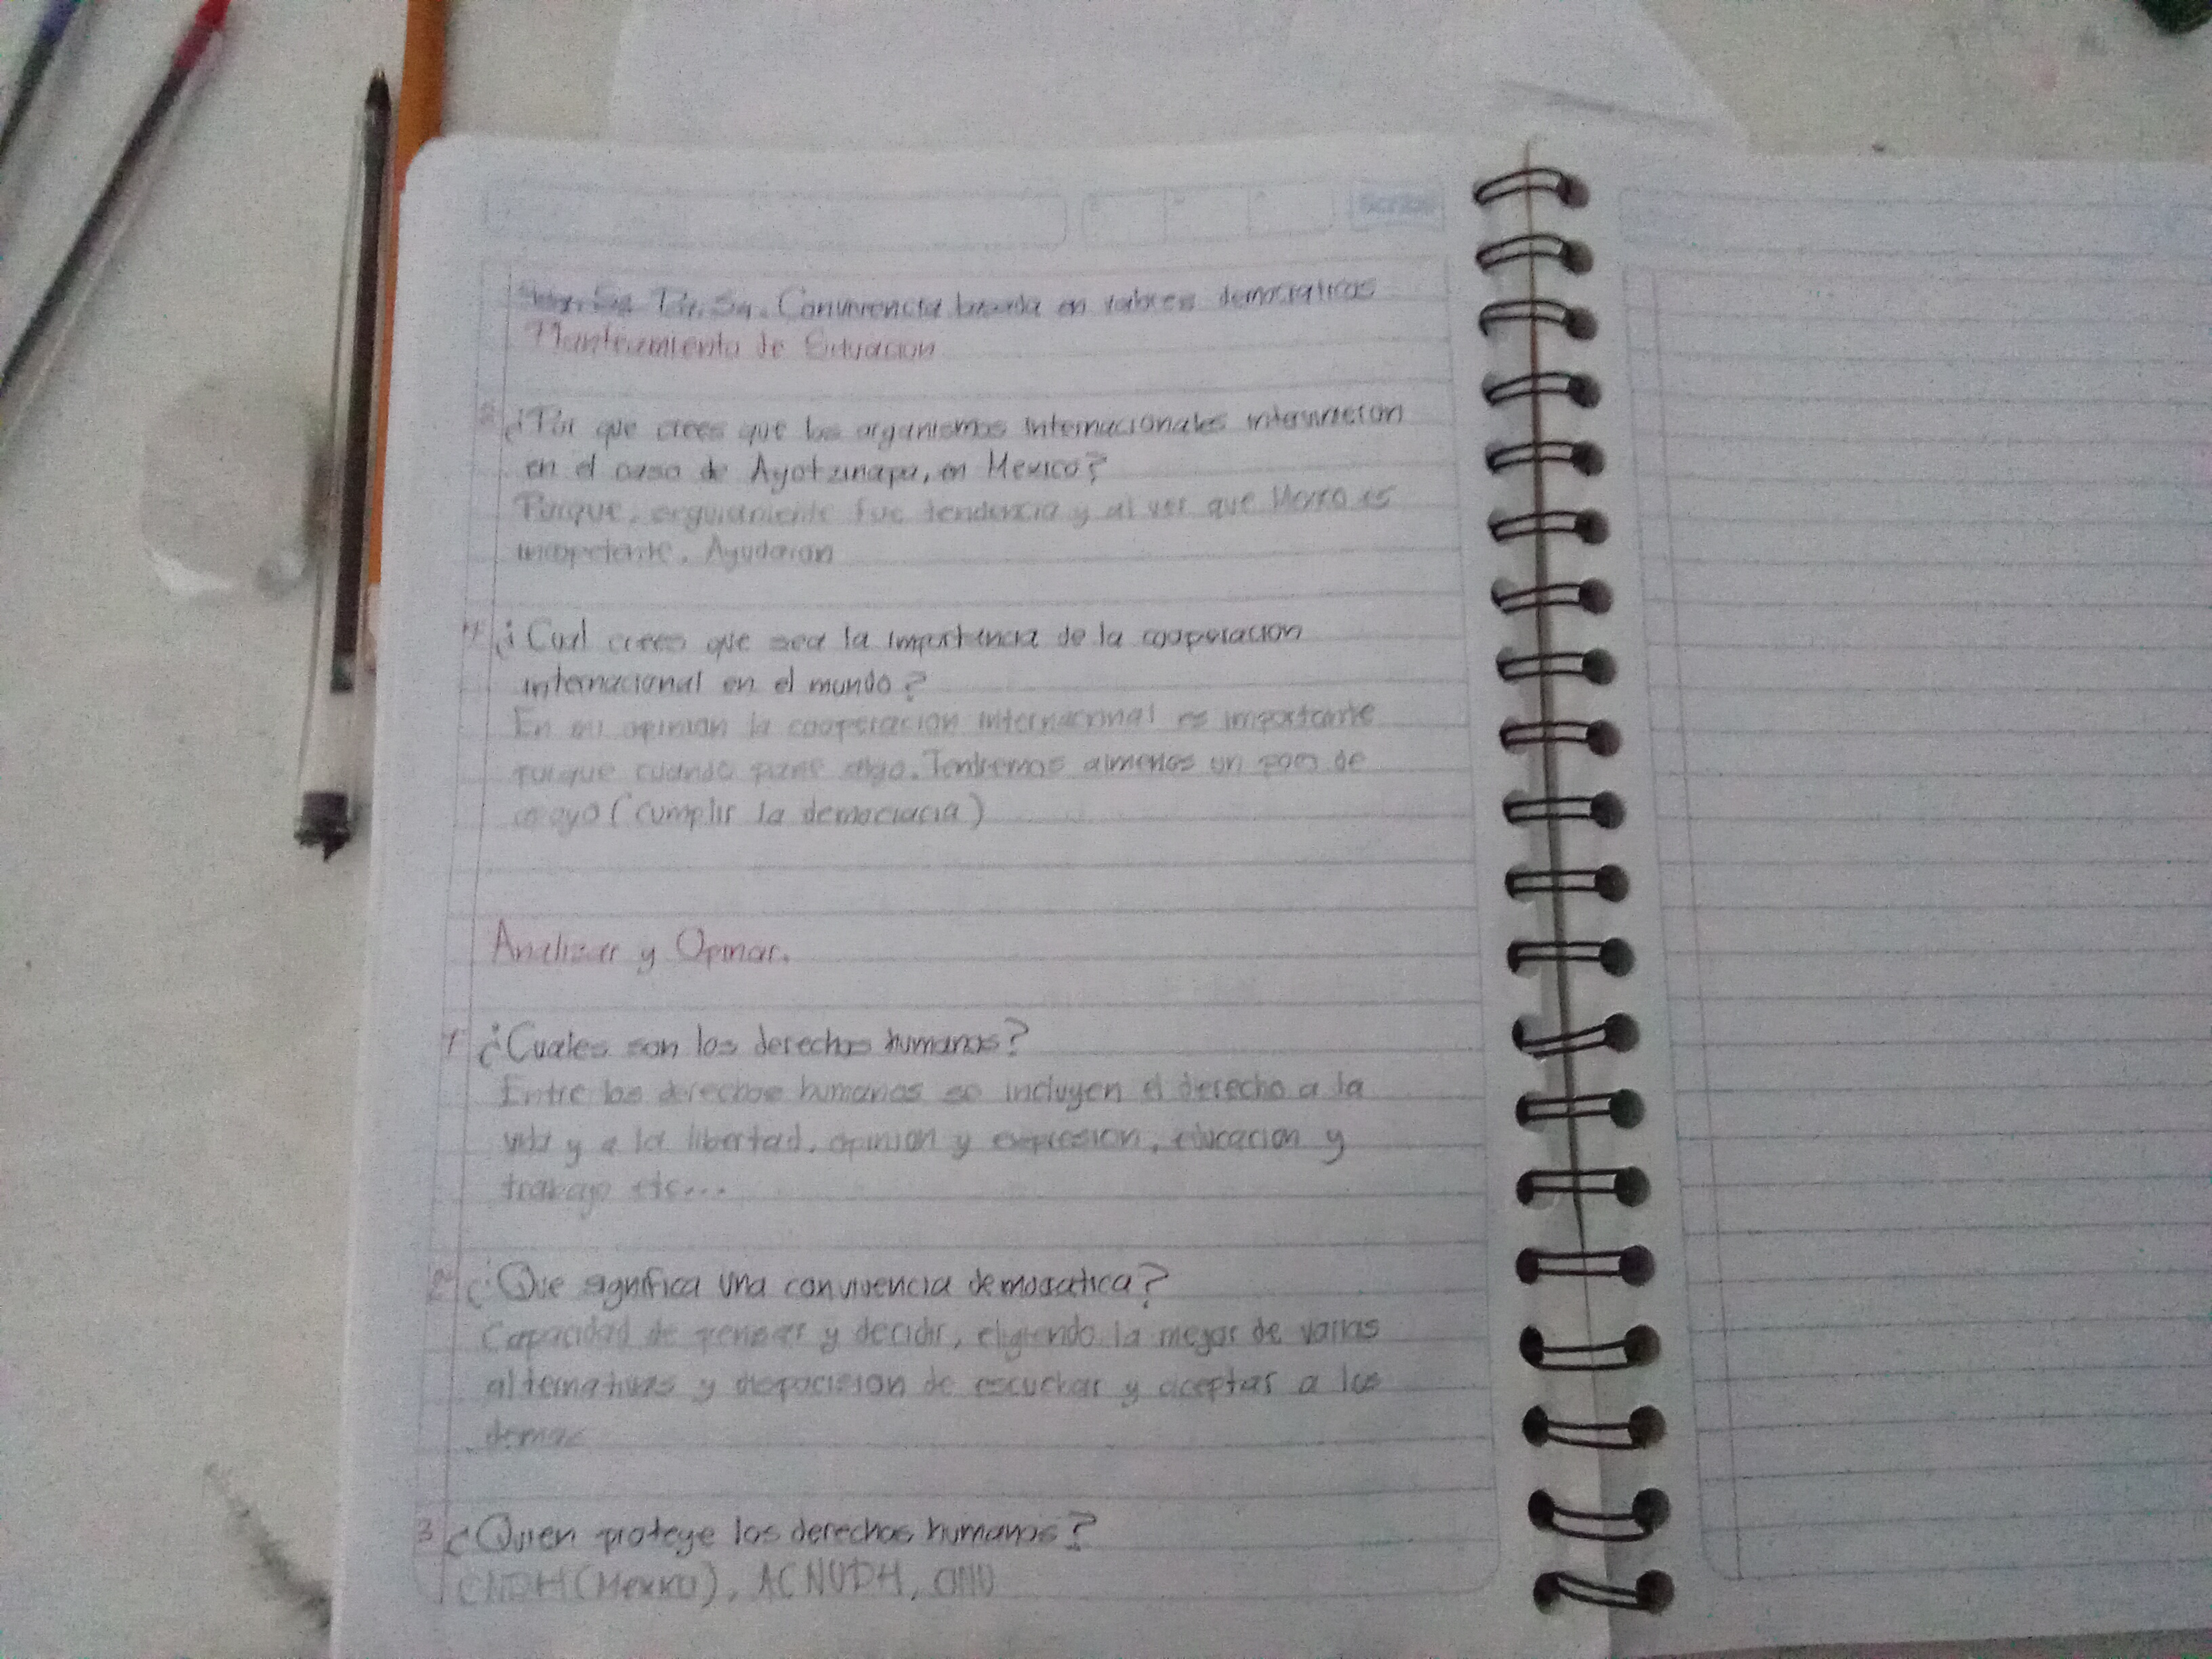 Convivencia basada en valores democraticos
Planteamiento de Situacion
¿Por que crees que los organismos internacionales intervinieron
en el caso de Ayotzinapa, en Mexico?
Porque, seguramente fue tendencia y al ver que Mexico es
incopetente. Ayudaron
4 ¿Cual crees que sea la importancia de la cooperacion
internacional en el mundo?
En mi opinion la cooperacion internacional es importante
Porque cuando pase algo. Tendremos almenos un poco de
apoyo (cumplir la democracia)
Analizar y Opinar.
1 ¿Cuales son los derechos humanos?
Entre los derechos humanos se incluyen el derecho a la
vida y a la libertad, opinion y expresion, educacion y
trabajo etc...
2 ¿Que significa una convivencia democratica?
Capacidad de pensar y decidir, eligiendo la mejor de varias
alternativas y disposicion de escuchar y aceptar a los
demas
3 ¿Quien protege los derechos humanos?
CNDH (Mexico), ACNUDH, ONU